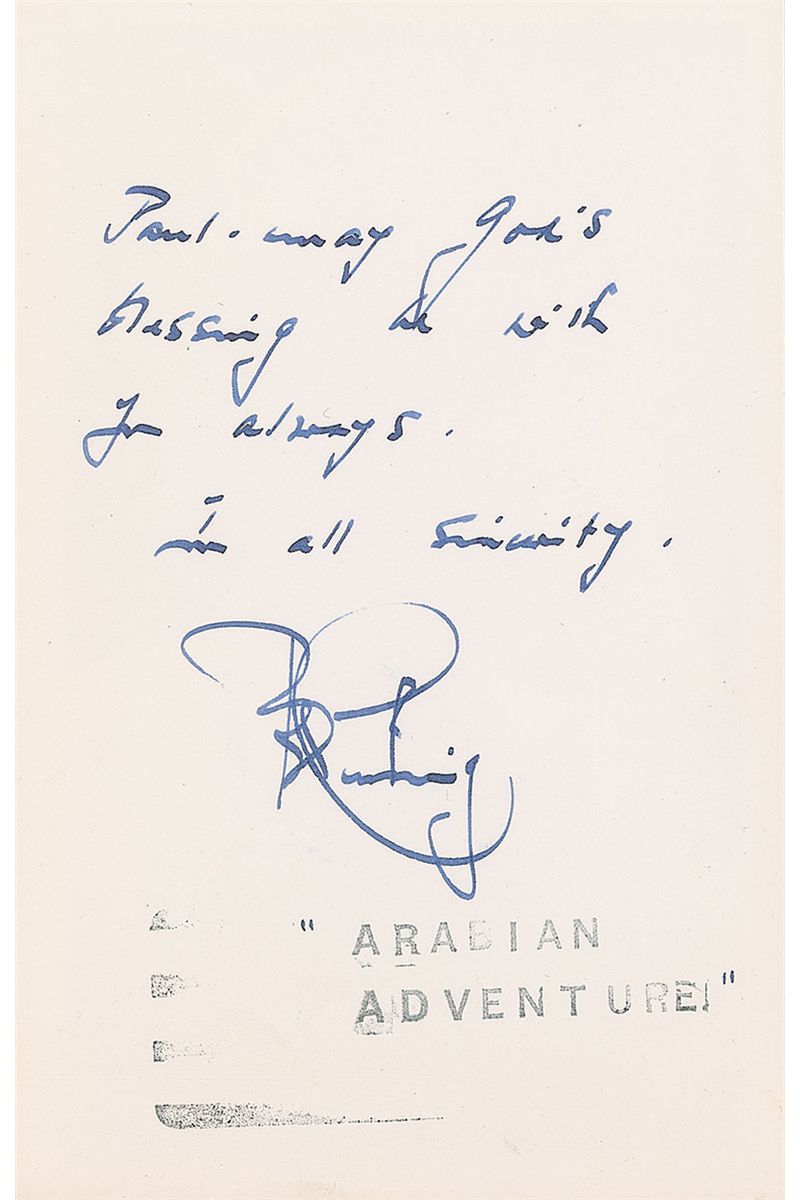 Paul - may God's
blessing be with
you always.
in all sincerity.
" ARABIAN
ADVENTURE "